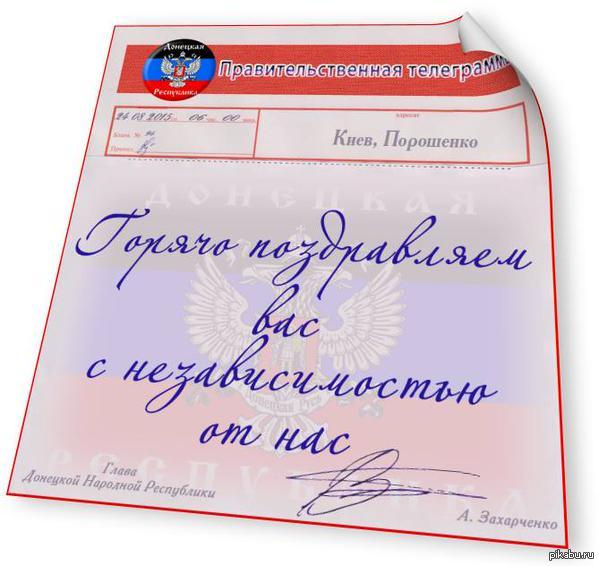 Донецкая
Республика
Правительственная телеграмма
24 08 2015 г. 06 час. 00 мин.
Бланк №
Принял
адресат
Киев, Порошенко
ДОНЕЦКАЯ
Горячо поздравляем
вас
с независимостью
от нас
Донецкая Русь
РЕСПУБЛИКА
Глава
Донецкой Народной Республики
А. Захарченко
pikabu.ru